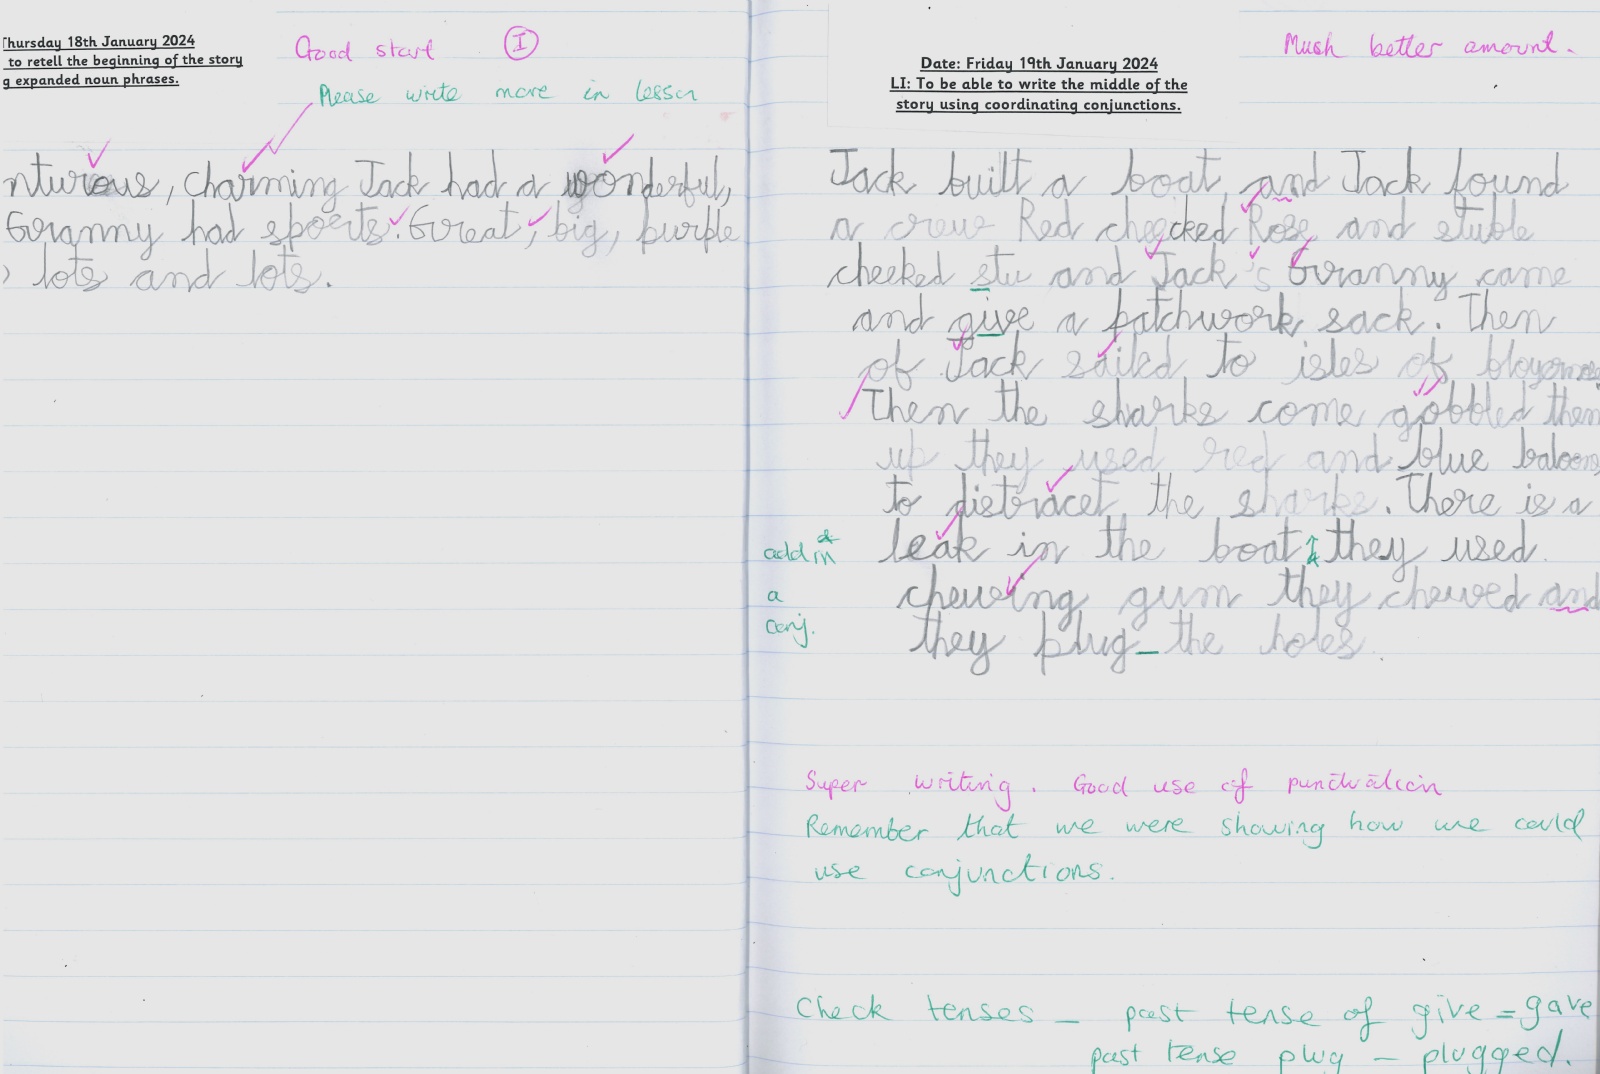 Thursday 18th January 2024
to retell the beginning of the story
g expanded noun phrases.
Good start I
Please write more in lesson
nturous, Charming Jack had a wonderful,
Granny had spoerts. Great, big, purple
lots and lots.
Much better amount.
Date: Friday 19th January 2024
LI: To be able to write the middle of the
story using coordinating conjunctions.
Jack built a boat, and Jack found
a crew Red cheecked Rose and stuble
cheeked stu and Jack's Granny came
and give a patchwork sack. Then
of Jack sailed to isles of
Then the sharks come gobbled them
up they used red and blue baloons
to distracet the sharks. There is a
leak in the boat they used
chewing gum they chewed and
they plug the holes.
add in
a
conj.
Super writing. Good use of punctuation
Remember that we were showing how we could
use conjunctions.
Check tenses - past tense of give = gave
past tense plug - plugged.